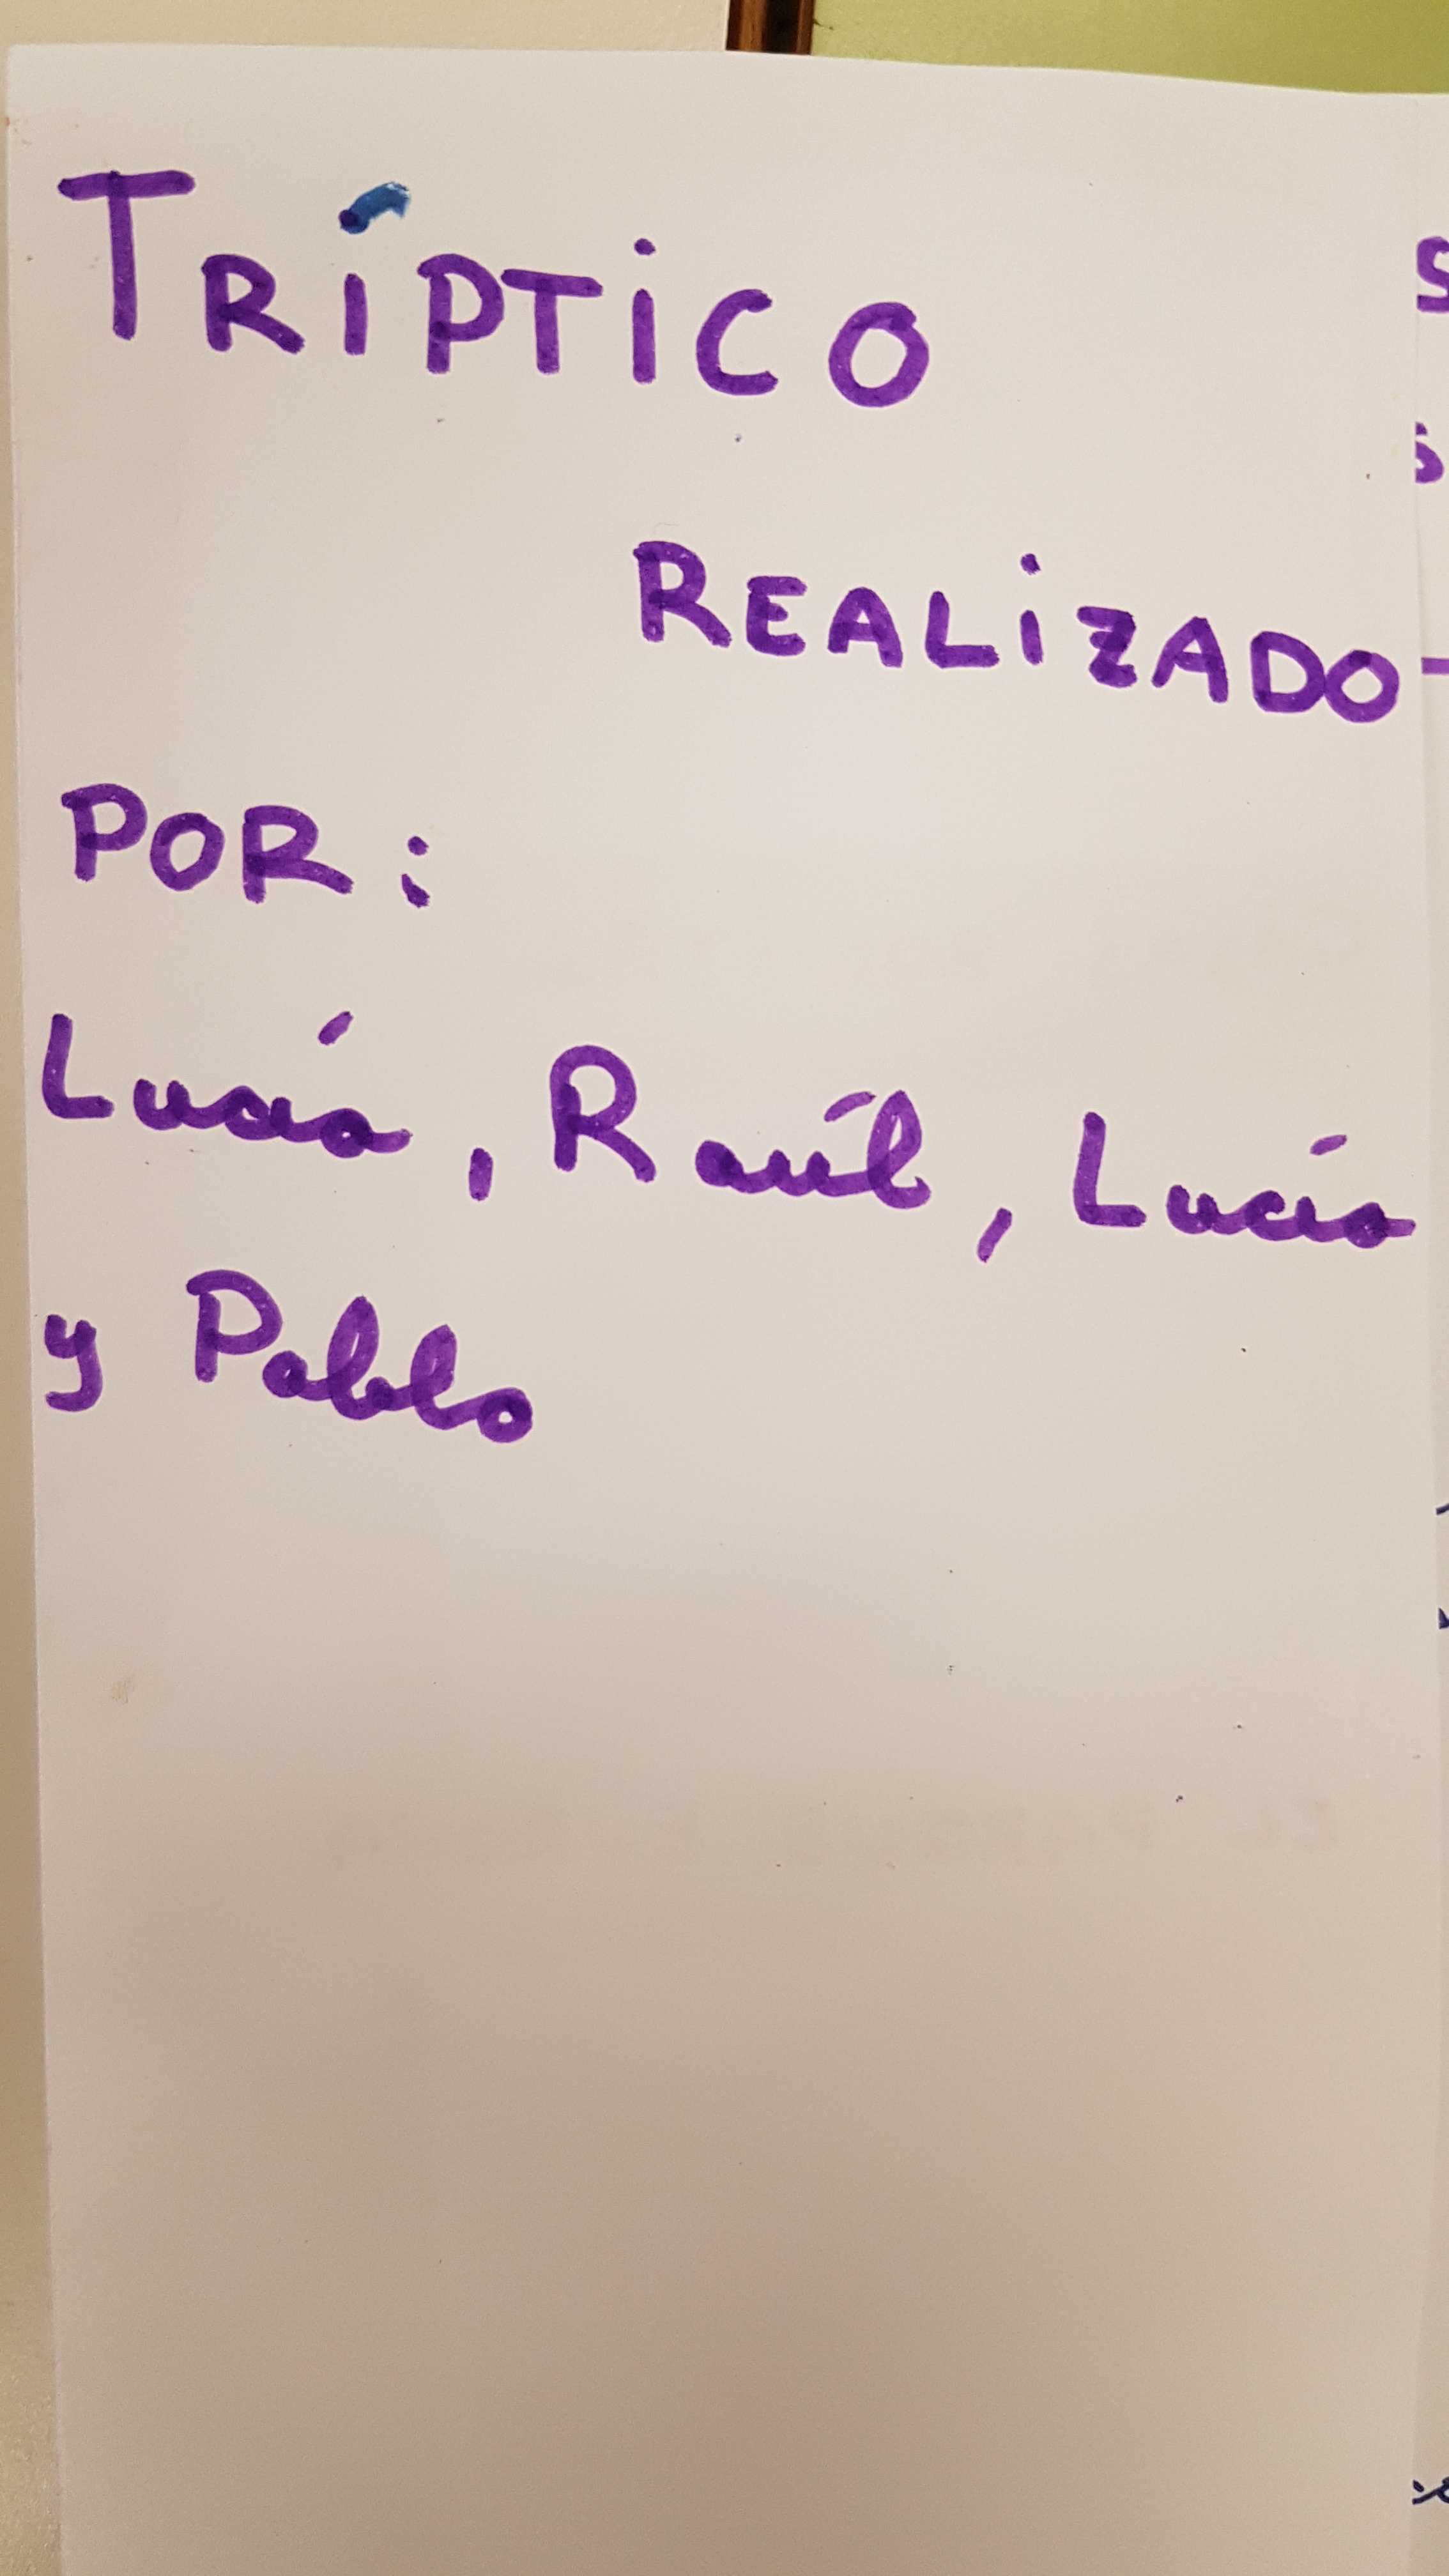 TRÍPTiCO
REALiZADO
POR:
Lucía, Raúl, Lucía
y Pablo